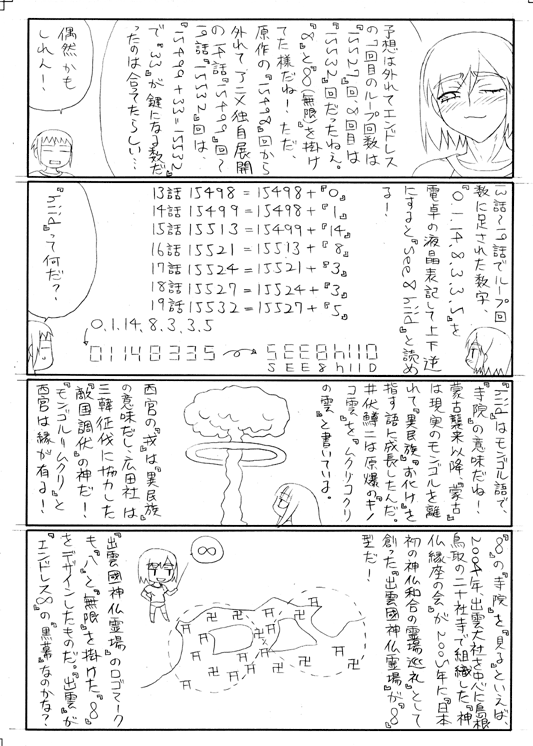 予想は外れてエンドレス
の7回目のループ回数は
『15527』回、8回目は
『15532』回だったねぇ。
『8』と『∞(無限)』を掛け
てた様だね!、ただ
原作の『15498』回から
外れてアニメ独自展開
の14話『15499』回〜
19話『15532』回は、
『15499+33=15532』
で『33』が鍵になる数だ
ったのは合ってたらしい…
偶然かも
しれん!
13話〜19話でループ回
数に足された数字、
『0.1.14.8.3.3.5』を
電卓の液晶表記して上下逆
にすると『See8hiid』と読め
る!
13話 15498=15498+『0』
14話 15499=15498+『1』
15話 15513=15499+『14』
16話 15521=15513+『8』
17話 15524=15521+『3』
18話 15527=15524+『3』
19話 15532=15527+『5』
0.1.14.8.3.3.5
01148335
SEE8hIID
S E E 8 h I I D
『hiid』って何だ?!
『hiid』はモンゴル語で、
『寺院』の意味だね!
蒙古襲来以降『蒙古』
は現実のモンゴルを離
れて『異民族』『お化け』を
指す語に成長したんだ。
井伏鱒二は原爆の『キノ
コ雲』を『ムクリコクリ
の雲』と書いているよ。
西宮の『戎』は『異民族』
の意味だし、広田社は
三韓征伐に協力した
『敵国調伏』の神だ!
『モンゴル=ムクリ』と
西宮は縁が有る!
『8』の『寺院』を『見る』といえば、
2004年、出雲大社を中心に島根
鳥取の二十社寺で組織した『神
仏縁座の会』が2005年に『日本
初の神仏和合の霊場巡礼』として
創った『出雲國神仏霊場』が『8』
型だ!
∞
『出雲國神仏霊場』のロゴマーク
も、『八』と『無限』を掛けた『8』
をデザインしたものだ。『出雲』が
『エンドレス∞』の『黒幕』なのかな?